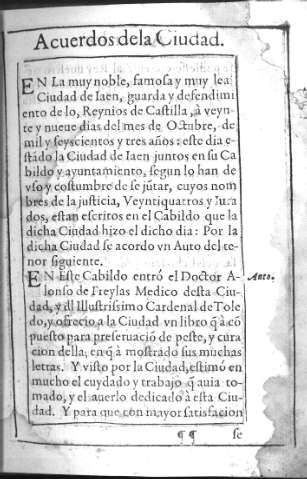 Acuerdos dela Ciudad.
EN La muy noble, famosa y muy lea
Ciudad de Iaen, guarda y defendimi
ento de lo, Reynios de Castilla, à veyn-
te y nueue dias del mes de Octubre, de
mil y seyscientos y tres años: este dia e-
stãdo la Ciudad de Iaen juntos en su Ca
bildo y ayuntamiento, segun lo han de
vso y costumbre de se jũtar, cuyos nom
bres de la justicia, Veyntiquatros y Iura
dos, estan escritos en el Cabildo que la
dicha Ciudad hizo el dicho dia: Por la
dicha Ciudad se acordo vn Auto del te-
nor siguiente.
EN Este Cabildo entrò el Doctor A-
lonso de Freylas Medico desta Ciu-
dad, y dl Illustrissimo Cardenal de Tole
do, y ofrecio a la Ciudad vn libro q̃ à cõ
puesto para preseruaciõ de peste, y cura
cion della, en q̃ à mostrado sus muchas
letras. Y visto por la Ciudad, estimó en
mucho el cuydado y trabajo q̃ auia to-
mado, y el auerlo dedicado à esta Ciu-
dad. Y para que con mayor satisfacion
Auto.
¶ ¶ se